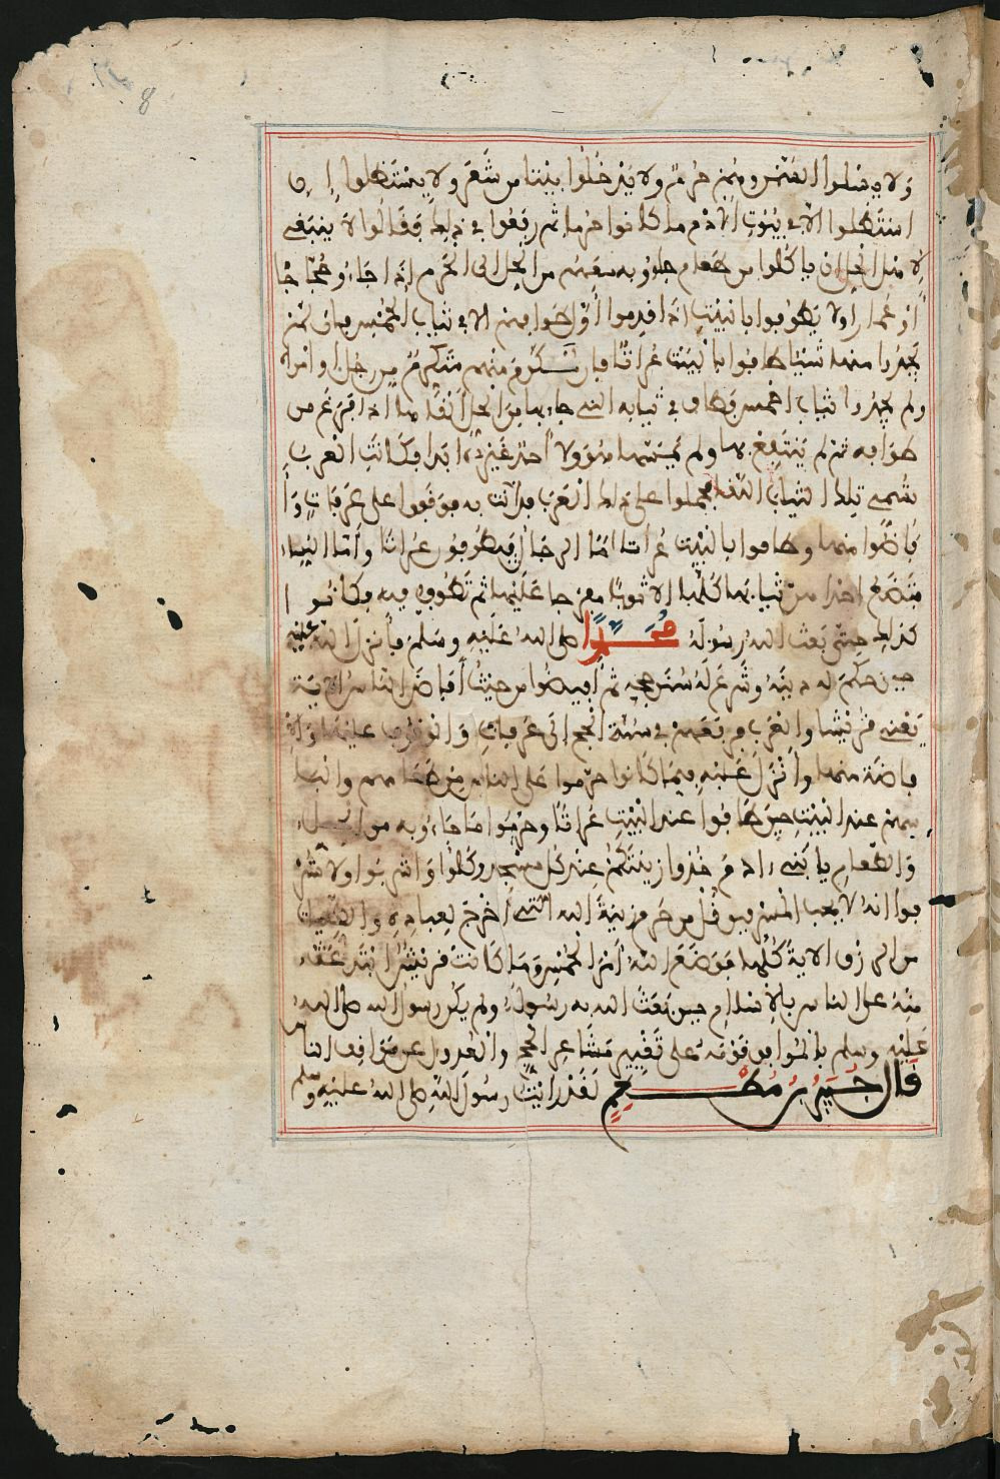 ولا يسلوا السمن وهم حرم ولا يدخلوا بيتا من شعر ولا يستظلوا إن
استظلوا الا في بيوت الادم ما كانوا حرما ثم رفعوا في ذلك فقالوا لا ينبغي
لاهل الحل ان ياكلوا من طعام جاؤوا به معهم من الحل الى الحرم إذا جاءوا حجاجا
أو عمارا ولا يطوفوا بالبيت إذا قدموا أول طوافهم الا في ثياب الحمس فإن لم
يجدوا منها شيئا طافوا بالبيت عراة فإن تكرم منهم متكرم من رجل أو امرأة
ولم يجدوا ثياب الحمس فطاف في ثيابه التي جاء بها من الحل ألقاها اذا فرغ من
طوافه ثم لم ينتفع بها ولم يمسها هو ولا أحد غيره ابدا فكانت العرب
تسمي تلك الثياب اللقا فحملوا على ذلك العرب فدانت به فوقفوا على عرفات وأ
فاضوا منها وطافوا بالبيت عراة اما الرجال فيطوفون عراة وأما النساء
فتضع احداهن ثيابها كلها الا ثوبا مفرجا عليها ثم تطوف فيه فكانوا
كذلك حتى بعث الله رسوله محمدا صلى الله عليه وسلم فأنزل الله عليه
حين حكم له دينه وشرع له سنن حجه ثم أفيضوا من حيث أفاض الناس الاية
يعني قريشا والعرب فرفعهم في سنة الحج الى عرفات والوقوف عليها والإ
فاضة منها وأنزل عليه فيما كانوا حرموا على الناس من طعامهم ولبا
سهم عند البيت حين طافوا عند البيت عراة وحرموا ما جاءوا به من الحل
والطعام يا بني ادم خذوا زينتكم عند كل مسجد وكلوا واشربوا ولا تسر
فوا انه لا يحب المسرفين قل من حرم زينة الله التي أخرج لعباده والطيبات
من الرزق الاية كلها فوضع الله أمر الحمس وما كانت قريش ابتدعت
منه على الناس بالإسلام حين بعث الله به رسوله ولم يكن رسول الله صلى الله
عليه وسلم بالموافق قومه على تغيير مشاعر الحج والعدول عن مواقف النا
قال جبير بن مطعم لقد رأيت رسول الله صلى الله عليه وسلم